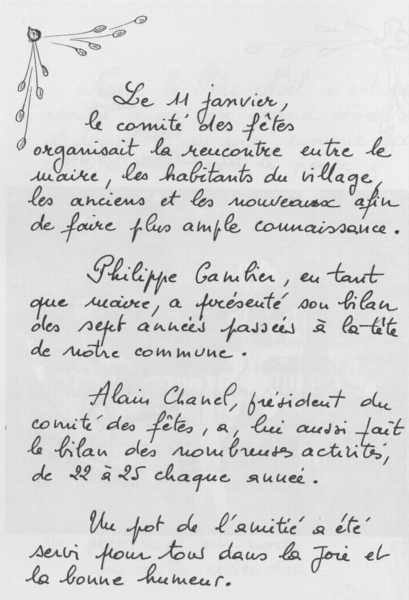 Le 11 janvier,
le comité des fêtes
organisait la rencontre entre le
maire, les habitants du village,
les anciens et les nouveaux afin
de faire plus ample connaissance.
Philippe Gambier, en tant
que maire, a présenté son bilan
des sept années passées à la tête
de notre commune.
Alain Chanel, président du
comité des fêtes, a, lui aussi fait
le bilan des nombreuses activités,
de 22 à 25 chaque année.
Un pot de l'amitié a été
servi pour tous dans la joie et
la bonne humeur.